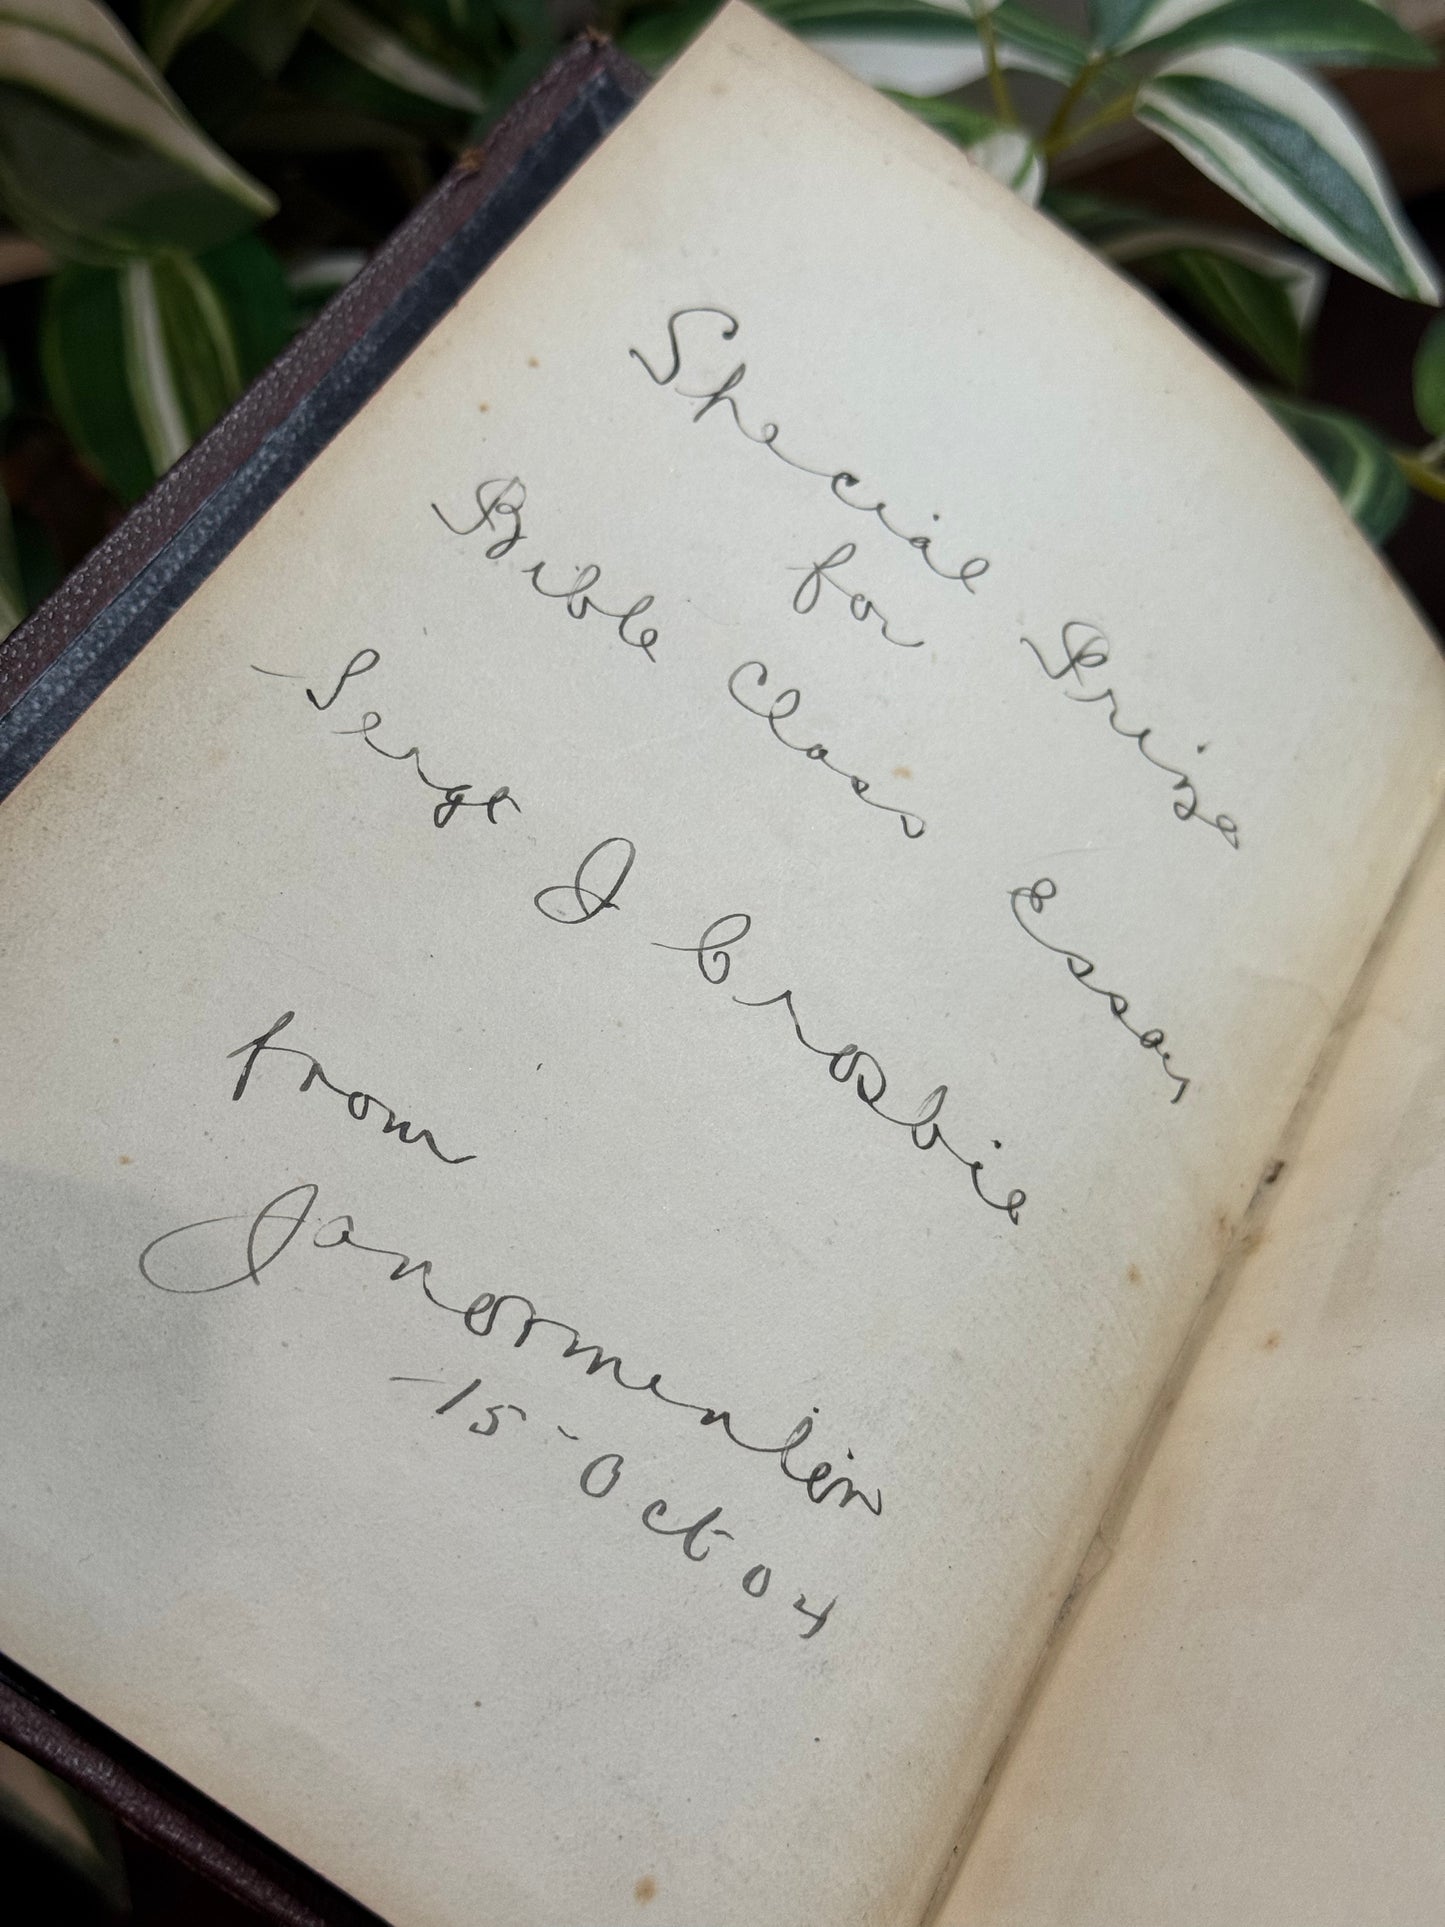 Special Prize
for
Bible Class Essay
Sergt J Crosbie
from
15 Oct 04